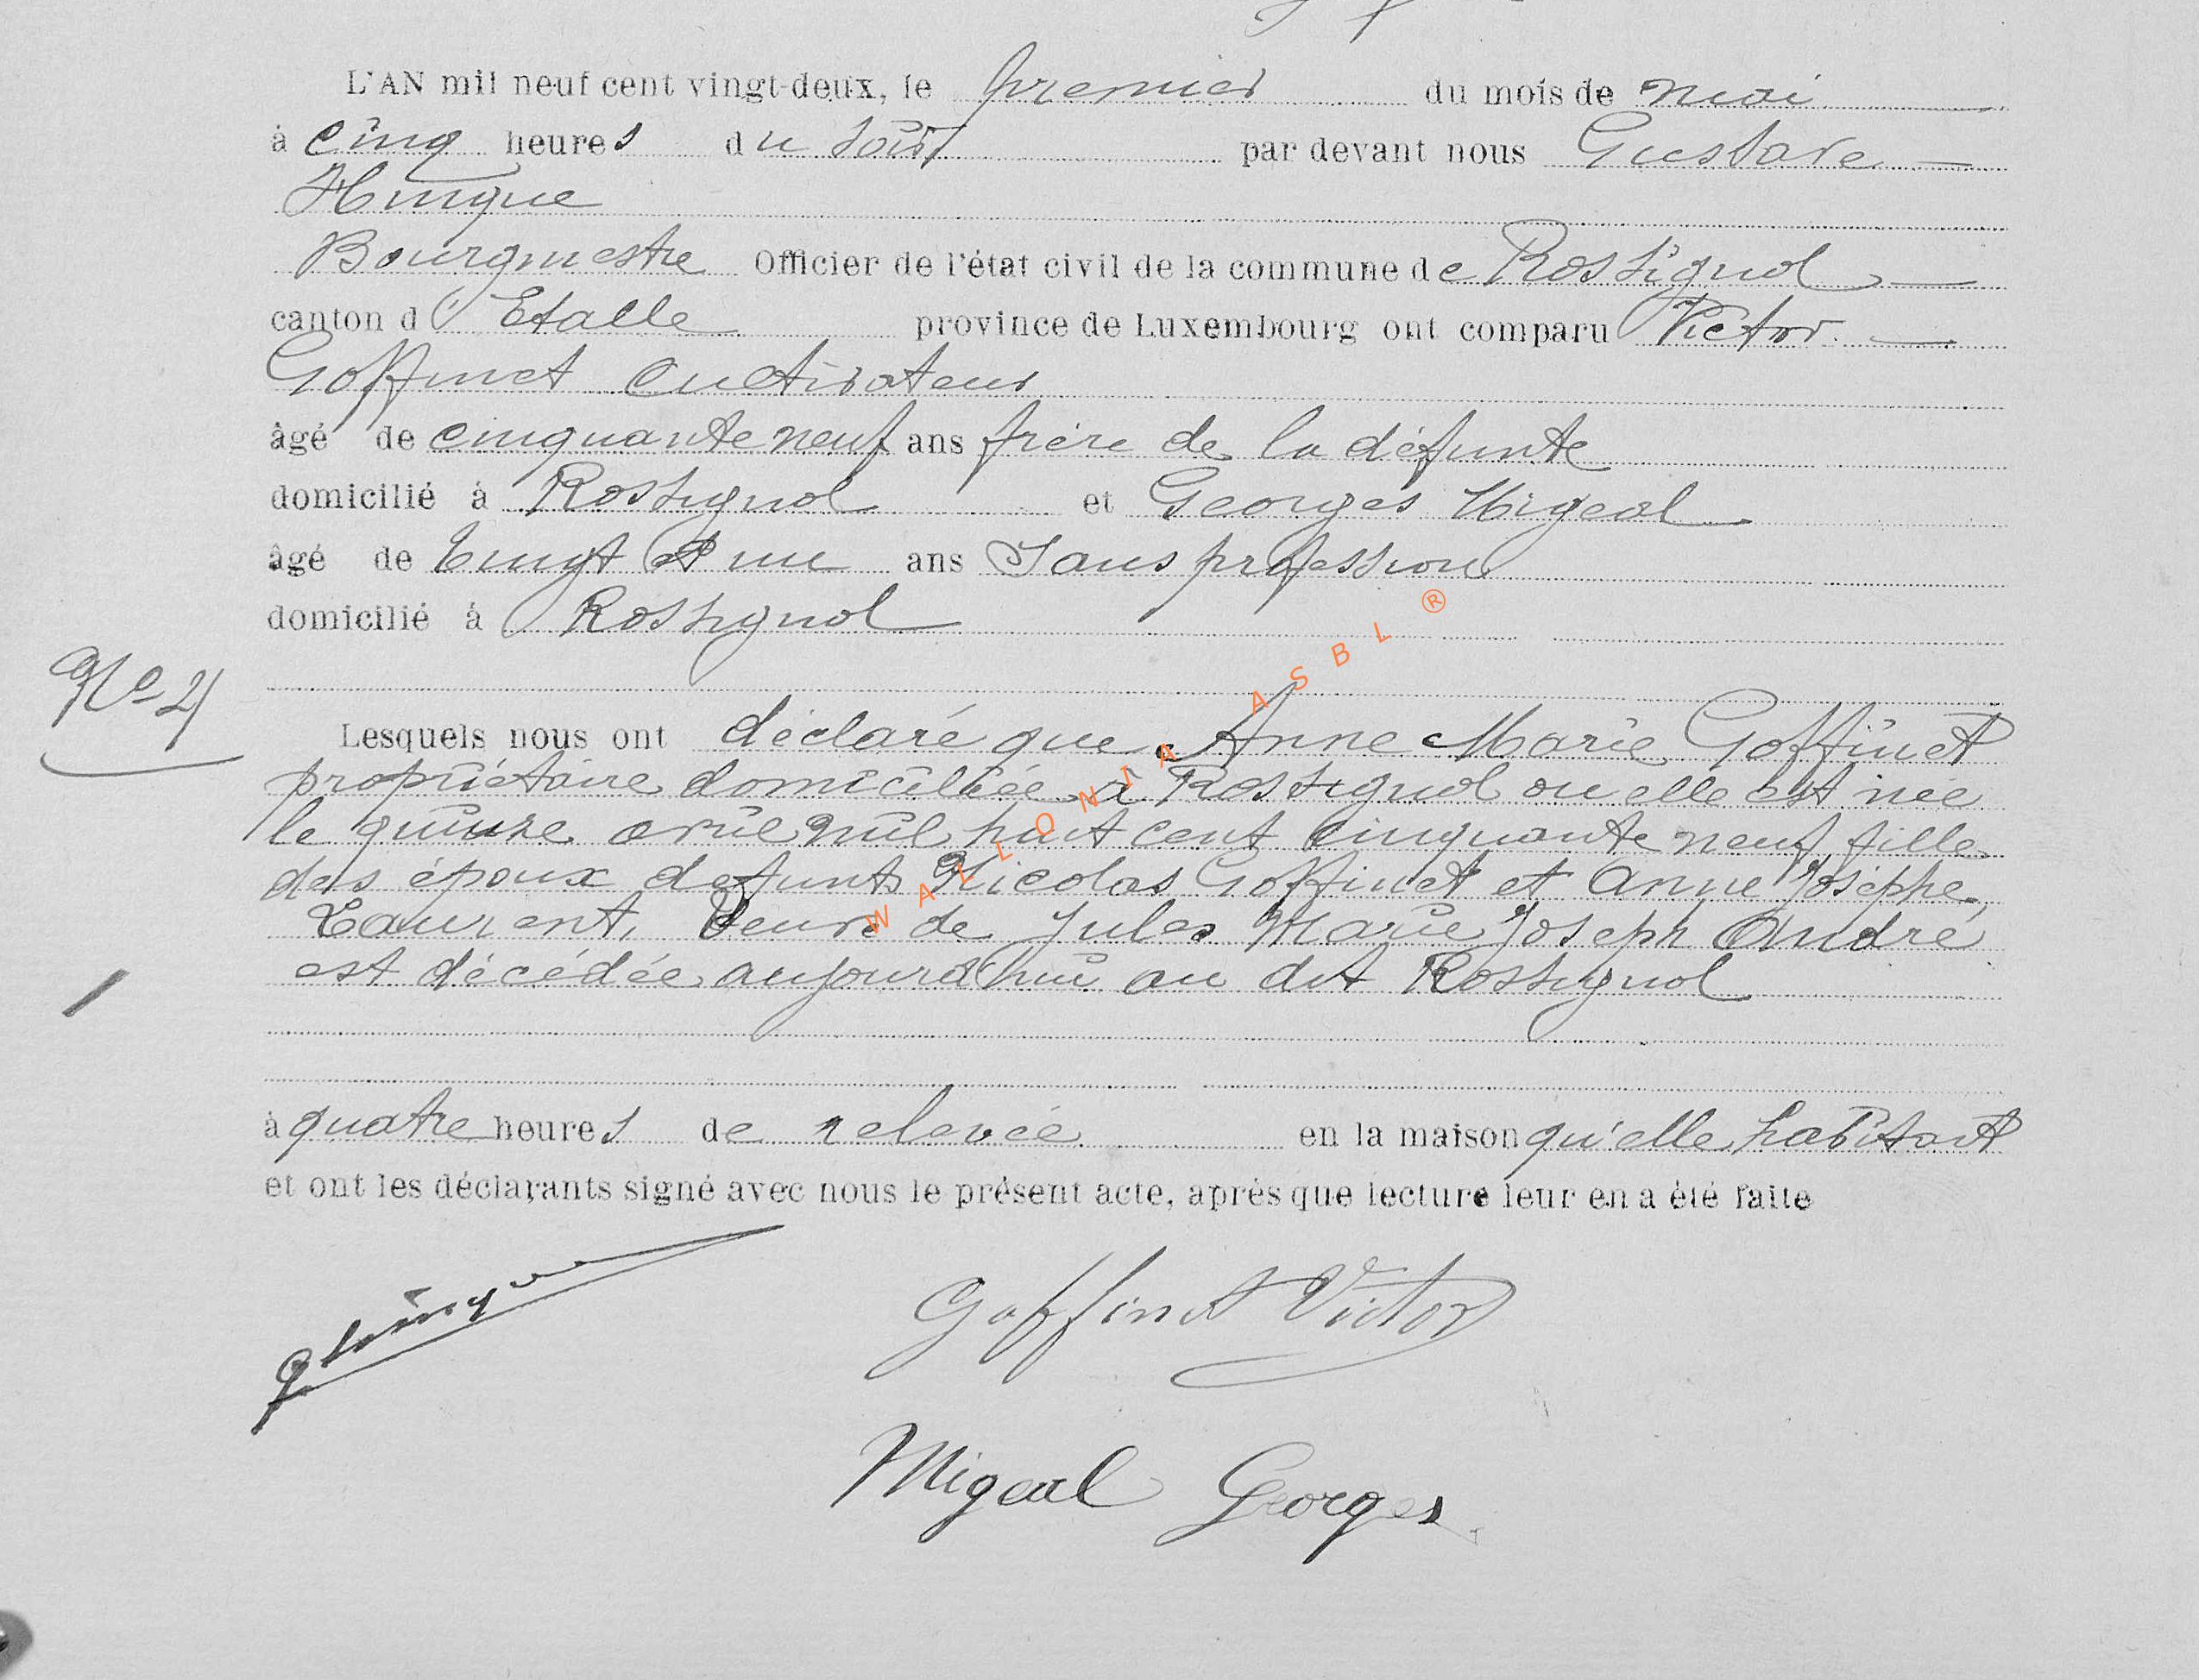 L'AN mil neuf cent vingt-deux, le premier du mois de mai
à cinq heures du soir par devant nous Gustave
Hinque
Bourgmestre Officier de l'état civil de la commune de Rossignol
canton d'Etalle province de Luxembourg ont comparu Victor
Goffinet cultivateur
âgé de cinquante neuf ans frère de la défunte
domicilié à Rossignol et Georges Migeal
âgé de vingt et un ans Sans profession
domicilié à Rossignol
No 4
Lesquels nous ont déclaré que Anne Marie Goffinet
propriétaire domiciliée à Rossignol ou elle est née
le quinze avril mil huit cent cinquante neuf fille
des époux defunts Nicolas Goffinet et Anne Josèphe
Laurent, Veuve de Jules Marie Joseph André
est décédée aujourd'hui au dit Rossignol
à quatre heures de relevée en la maison qu'elle habitait
et ont les déclarants signé avec nous le présent acte, après que lecture leur en a été faite
Goffinet Victor
Migeal Georges
WALLONIA ASBL ®